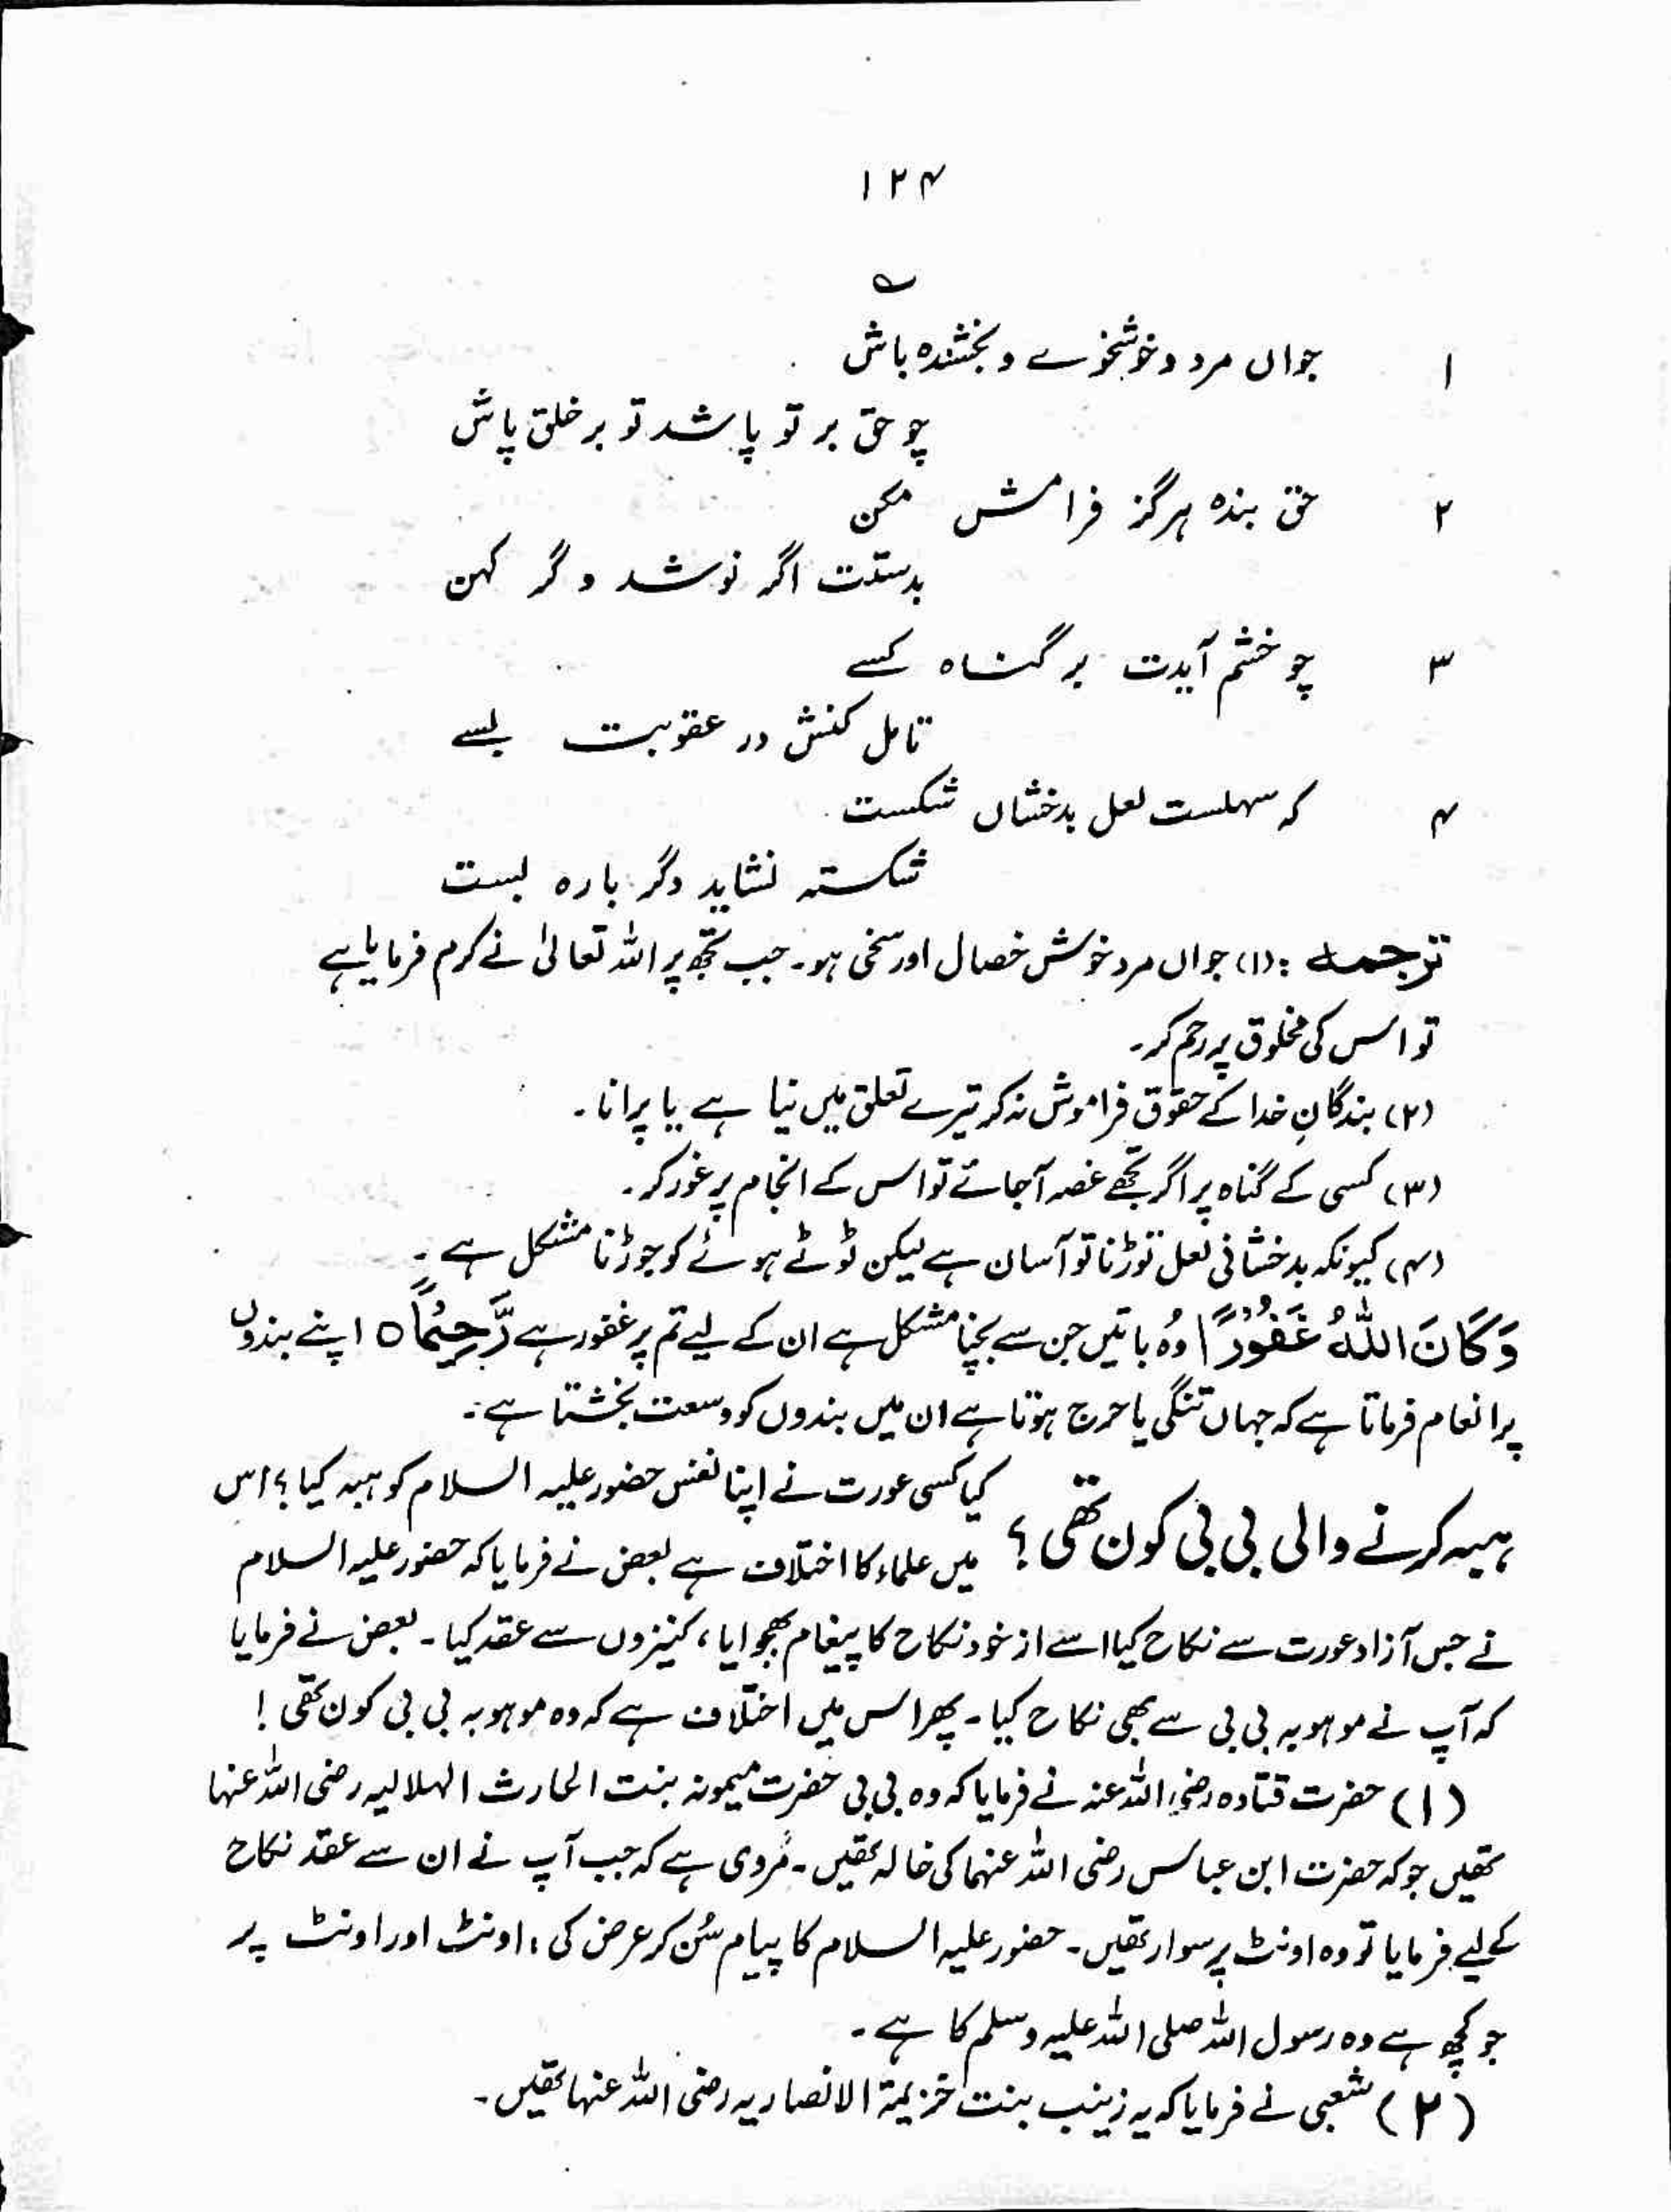 ۱۲۴
؎
۱ جواں مرد و خوشخوے و بخشندہ باش
چو حق بر تو پاشد تو بر خلق پاش
۲ حق بندہ ہرگز فرامش مکن
بدستت اگر نوشد و گر کہن
۳ چو خشم آیدت بر گناہ کسے
تامل کنش در عقوبت بسے
۴ کہ سہلست لعل بدخشاں شکست
شکستہ نشاید دگر بارہ بست
ترجمہ : (۱) جواں مرد خوش خصال اور سخی ہو۔ جب تجھ پر اللہ تعالیٰ نے کرم فرمایا ہے
تو اس کی مخلوق پر رحم کر۔
(۲) بندگانِ خدا کے حقوق فراموش نہ کر تیرے تعلق میں نیا ہے یا پرانا۔
(۳) کسی کے گناہ پر اگر تجھے غصہ آجائے تو اس کے انجام پر غور کر۔
(۴) کیونکہ بدخشانی لعل توڑنا تو آسان ہے لیکن ٹوٹے ہوئے کو جوڑنا مشکل ہے۔
وَكَانَ اللّٰهُ غَفُوْرًا وُہ باتیں جن سے بچنا مشکل ہے ان کے لیے تم پر غفور ہے رَّحِيْمًا ○ اپنے بندوں
پر انعام فرماتا ہے کہ جہاں تنگی یا حرج ہوتا ہے ان میں بندوں کو وسعت بخشتا ہے۔
ہبہ کرنے والی بی بی کون تھی ؟ کیا کسی عورت نے اپنا نفس حضور علیہ السلام کو ہبہ کیا ؟ اس
میں علماء کا اختلاف ہے بعض نے فرمایا کہ حضور علیہ السلام
نے جس آزاد عورت سے نکاح کیا اسے از خود نکاح کا پیغام بھجوایا ، کنیزوں سے عقد کیا۔ بعض نے فرمایا
کہ آپ نے موہوبہ بی بی سے بھی نکاح کیا۔ پھر اس میں اختلاف ہے کہ وہ موہوبہ بی بی کون تھی !
(۱) حضرت قتادہ رضی اللہ عنہ نے فرمایا کہ وہ بی بی حضرت میمونہ بنت الحارث الہلالیہ رضی اللہ عنہا
تھیں جو کہ حضرت ابن عباس رضی اللہ عنہما کی خالہ تھیں۔ مُروی ہے کہ جب آپ نے ان سے عقد نکاح
کے لیے فرمایا تو وہ اونٹ پر سوار تھیں۔ حضور علیہ السلام کا پیام سُن کر عرض کی : اونٹ اور اونٹ پر
جو کچھ ہے وہ رسول اللہ صلی اللہ علیہ وسلم کا ہے۔
(۲) شعبی نے فرمایا کہ یہ زینب بنت خزیمۃ الانصاریہ رضی اللہ عنہا تھیں۔